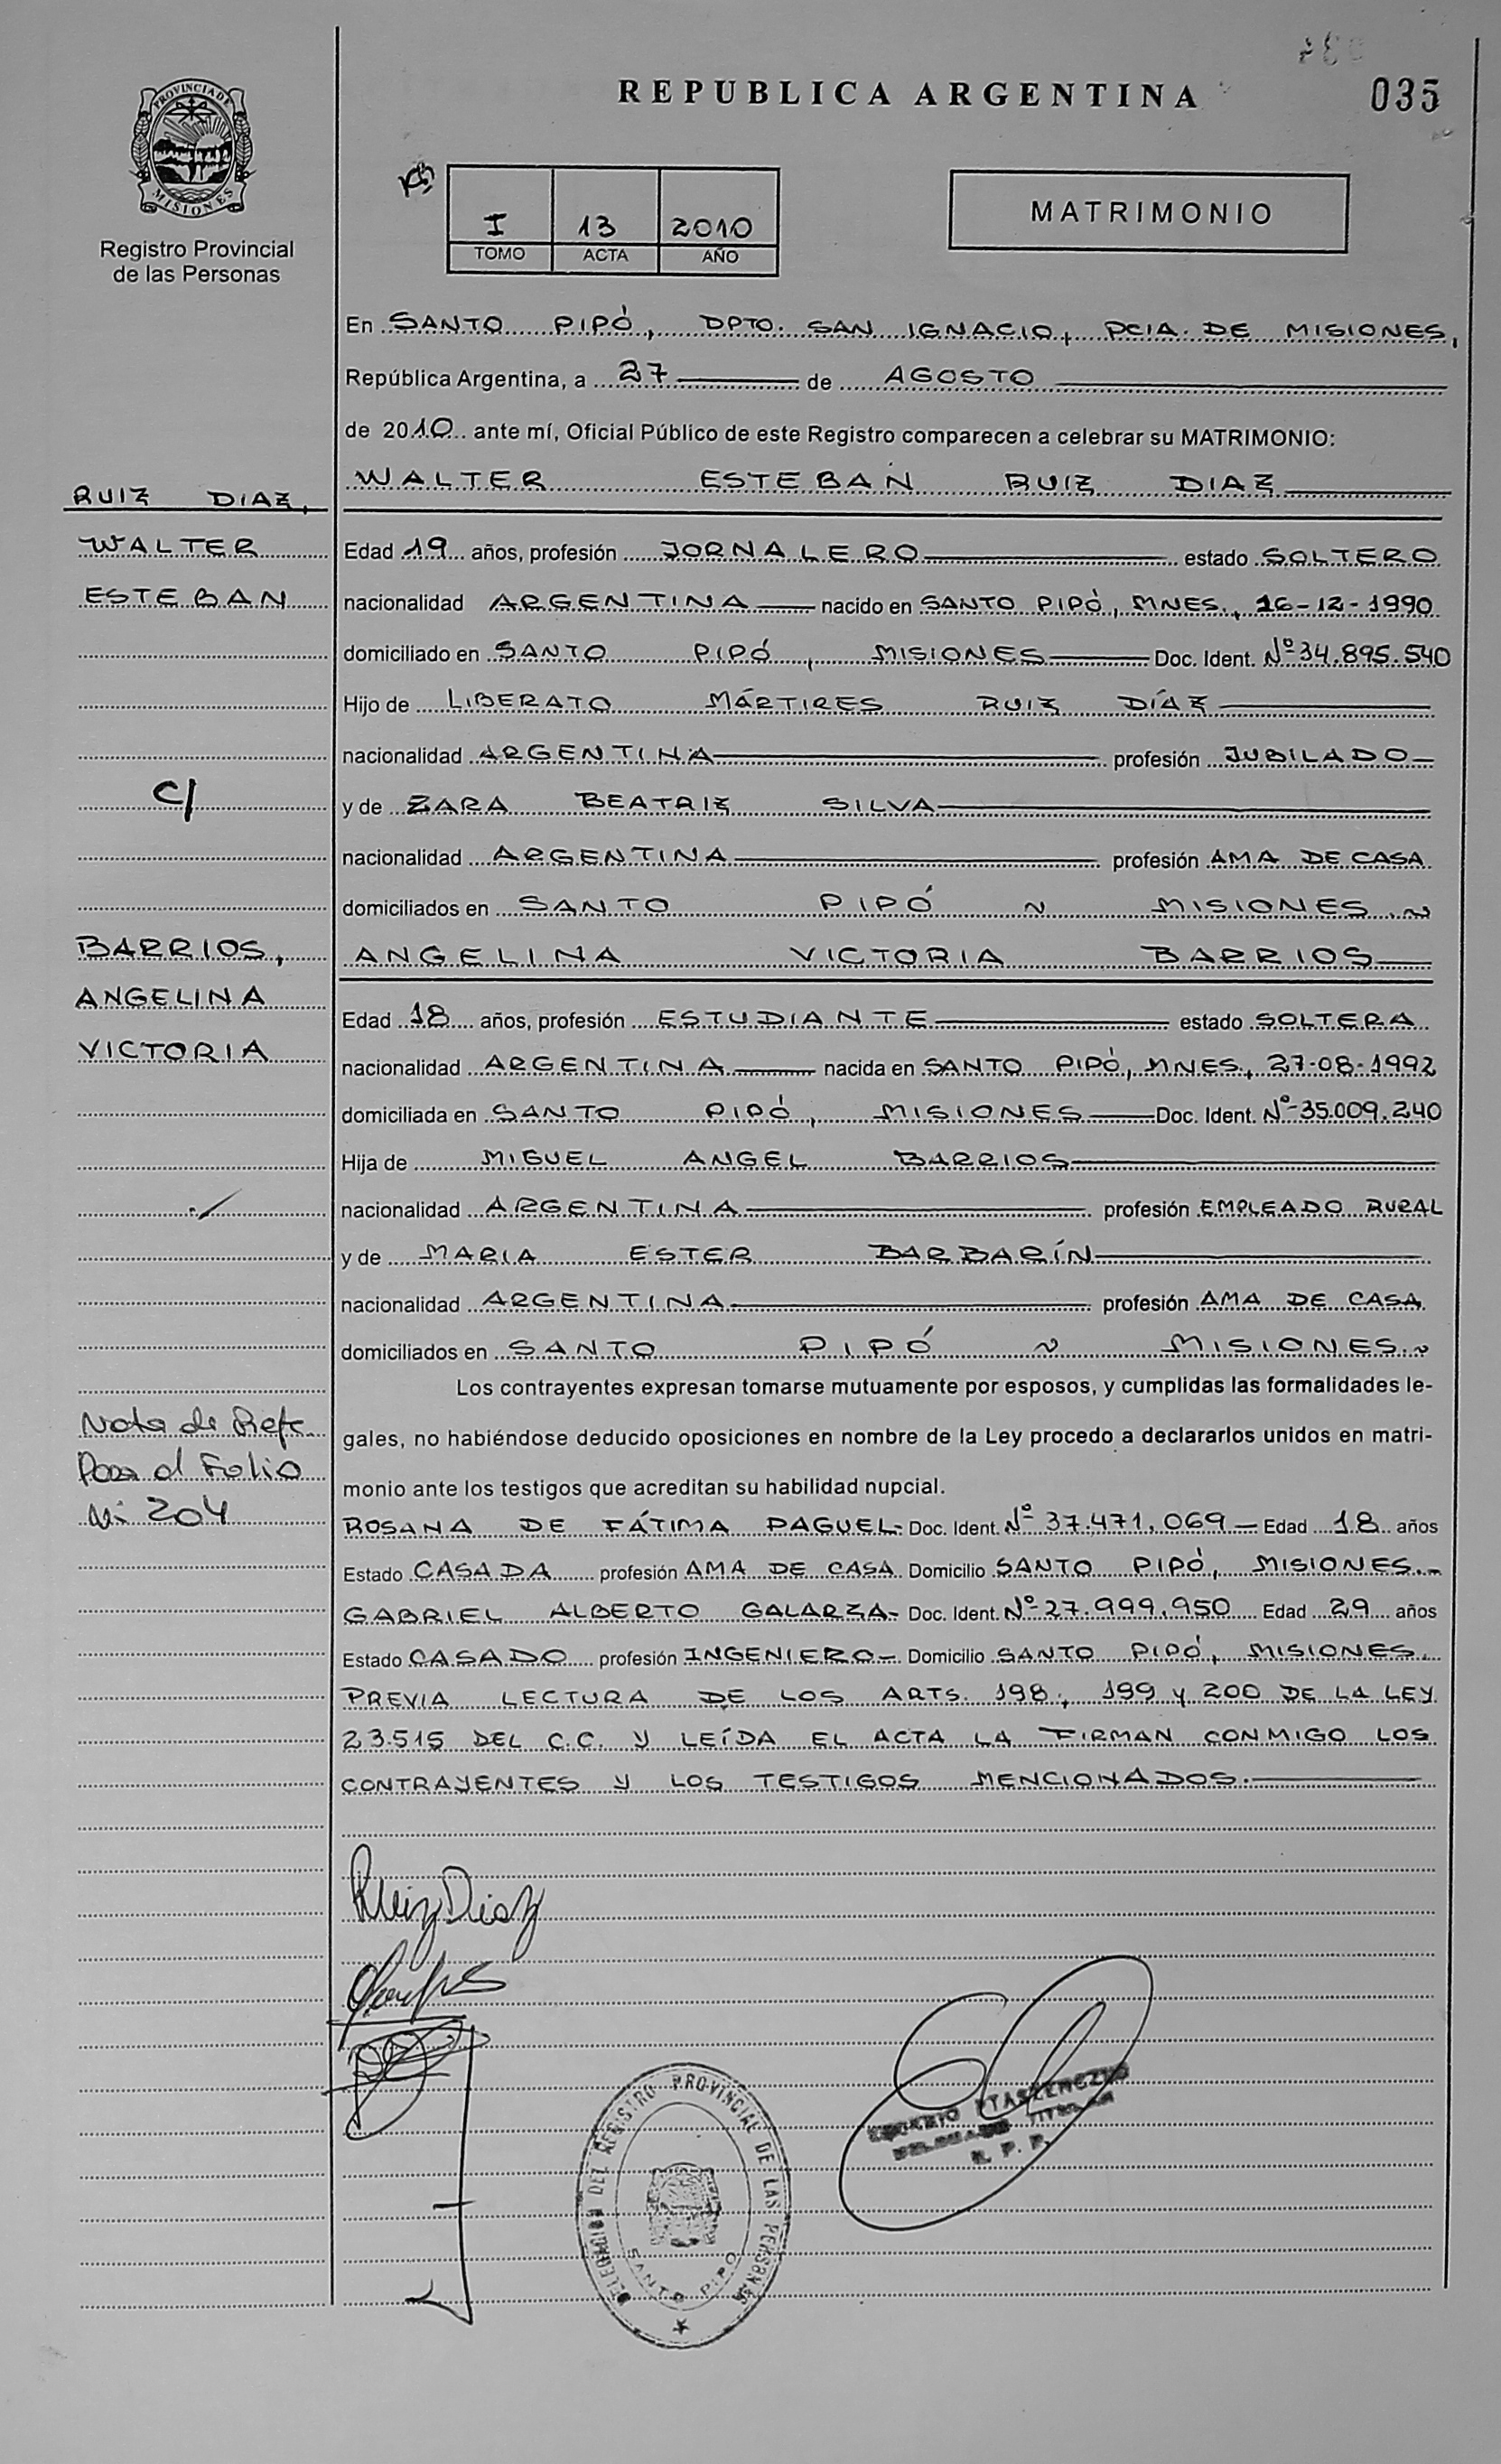 REPUBLICA ARGENTINA
035
PROVINCIA DE
MISIONES
Registro Provincial
de las Personas
I 13 2010
TOMO ACTA AÑO
MATRIMONIO
En SANTO PIPÓ, DPTO. SAN IGNACIO, PCIA. DE MISIONES,
República Argentina, a 27 de AGOSTO
de 2010 ante mí, Oficial Público de este Registro comparecen a celebrar su MATRIMONIO:
WALTER ESTEBAN RUIZ DIAZ
Edad 19 años, profesión JORNALERO estado SOLTERO
nacionalidad ARGENTINA nacido en SANTO PIPÓ, MNES., 16-12-1990
domiciliado en SANTO PIPÓ, MISIONES Doc. Ident. Nº 34.895.540
Hijo de LIBERATO MÁRTIRES RUIZ DÍAZ
nacionalidad ARGENTINA profesión JUBILADO
y de ZARA BEATRIZ SILVA
nacionalidad ARGENTINA profesión AMA DE CASA
domiciliados en SANTO PIPÓ ~ MISIONES ~
ANGELINA VICTORIA BARRIOS
Edad 18 años, profesión ESTUDIANTE estado SOLTERA
nacionalidad ARGENTINA nacida en SANTO PIPÓ, MNES., 27-08-1992
domiciliada en SANTO PIPÓ, MISIONES Doc. Ident. Nº 35.009.240
Hija de MIGUEL ANGEL BARRIOS
nacionalidad ARGENTINA profesión EMPLEADO RURAL
y de MARIA ESTER BARBARÍN
nacionalidad ARGENTINA profesión AMA DE CASA
domiciliados en SANTO PIPÓ ~ MISIONES ~
Los contrayentes expresan tomarse mutuamente por esposos, y cumplidas las formalidades le-
gales, no habiéndose deducido oposiciones en nombre de la Ley procedo a declararlos unidos en matri-
monio ante los testigos que acreditan su habilidad nupcial.
ROSANA DE FÁTIMA PAGUEL- Doc. Ident. Nº 37.471.069 - Edad 18 años
Estado CASADA profesión AMA DE CASA Domicilio SANTO PIPÓ, MISIONES.-
GABRIEL ALBERTO GALARZA- Doc. Ident. Nº 27.999.950 Edad 29 años
Estado CASADO profesión INGENIERO- Domicilio SANTO PIPÓ, MISIONES.
PREVIA LECTURA DE LOS ARTS. 198, 199 y 200 DE LA LEY
23.515 DEL C.C. Y LEÍDA EL ACTA LA FIRMAN CONMIGO LOS
CONTRAYENTES Y LOS TESTIGOS MENCIONADOS.
RUIZ DIAZ,
WALTER
ESTEBAN
C/
BARRIOS,
ANGELINA
VICTORIA
Nota de Ref.
Pasa al Folio
Nº 204
Ruiz Diaz
DELEGACION DEL REGISTRO PROVINCIAL DE LAS PERSONAS
SANTO PIPO
TITULAR
R. P. P.